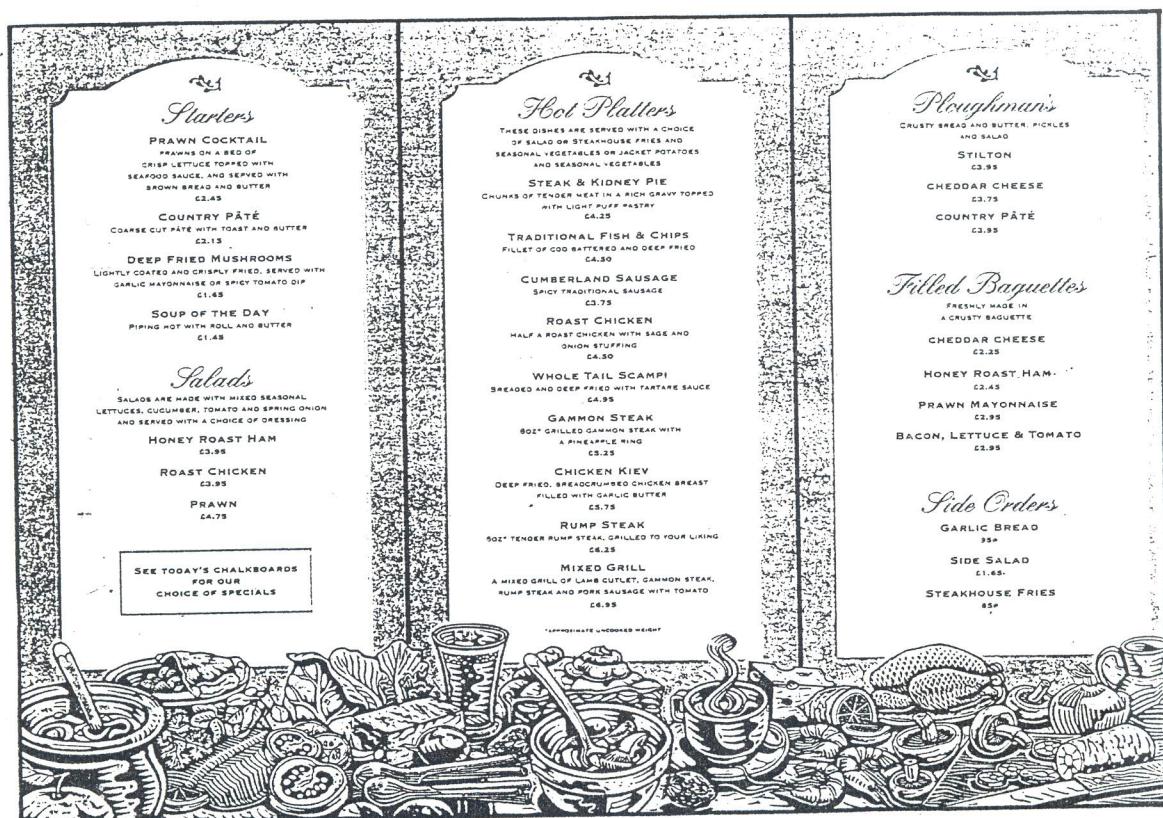 Starters
PRAWN COCKTAIL
PRAWNS ON A BED OF
CRISP LETTUCE TOPPED WITH
SEAFOOD SAUCE, AND SERVED WITH
BROWN BREAD AND BUTTER
£2.45
COUNTRY PÂTÉ
COARSE CUT PÂTÉ WITH TOAST AND BUTTER
£2.15
DEEP FRIED MUSHROOMS
LIGHTLY COATED AND CRISPLY FRIED, SERVED WITH
GARLIC MAYONNAISE OR SPICY TOMATO DIP
£1.65
SOUP OF THE DAY
PIPING HOT WITH ROLL AND BUTTER
£1.45
Salads
SALADS ARE MADE WITH MIXED SEASONAL
LETTUCES, CUCUMBER, TOMATO AND SPRING ONION
AND SERVED WITH A CHOICE OF DRESSING
HONEY ROAST HAM
£3.95
ROAST CHICKEN
£3.95
PRAWN
£4.75
SEE TODAY'S CHALKBOARDS
FOR OUR
CHOICE OF SPECIALS
Hot Platters
THESE DISHES ARE SERVED WITH A CHOICE
OF SALAD OR STEAKHOUSE FRIES AND
SEASONAL VEGETABLES OR JACKET POTATOES
AND SEASONAL VEGETABLES
STEAK & KIDNEY PIE
CHUNKS OF TENDER MEAT IN A RICH GRAVY TOPPED
WITH LIGHT PUFF PASTRY
£4.25
TRADITIONAL FISH & CHIPS
FILLET OF COD BATTERED AND DEEP FRIED
£4.50
CUMBERLAND SAUSAGE
SPICY TRADITIONAL SAUSAGE
£3.75
ROAST CHICKEN
HALF A ROAST CHICKEN WITH SAGE AND
ONION STUFFING
£4.50
WHOLE TAIL SCAMPI
BREADED AND DEEP FRIED WITH TARTARE SAUCE
£4.95
GAMMON STEAK
8OZ* GRILLED GAMMON STEAK WITH
A PINEAPPLE RING
£5.25
CHICKEN KIEV
DEEP FRIED, BREADCRUMBED CHICKEN BREAST
FILLED WITH GARLIC BUTTER
£5.75
RUMP STEAK
TENDER RUMP STEAK, GRILLED TO YOUR LIKING
£6.25
MIXED GRILL
A MIXED GRILL OF LAMB CUTLET, GAMMON STEAK,
RUMP STEAK AND PORK SAUSAGE WITH TOMATO
£6.95
*APPROXIMATE UNCOOKED WEIGHT
Ploughman's
CRUSTY BREAD AND BUTTER, PICKLES
AND SALAD
STILTON
£3.95
CHEDDAR CHEESE
£3.75
COUNTRY PÂTÉ
£3.95
Filled Baguettes
FRESHLY MADE IN
A CRUSTY BAGUETTE
CHEDDAR CHEESE
£2.25
HONEY ROAST HAM
£2.45
PRAWN MAYONNAISE
£2.95
BACON, LETTUCE & TOMATO
£2.95
Side Orders
GARLIC BREAD
95P
SIDE SALAD
£1.65
STEAKHOUSE FRIES
85P